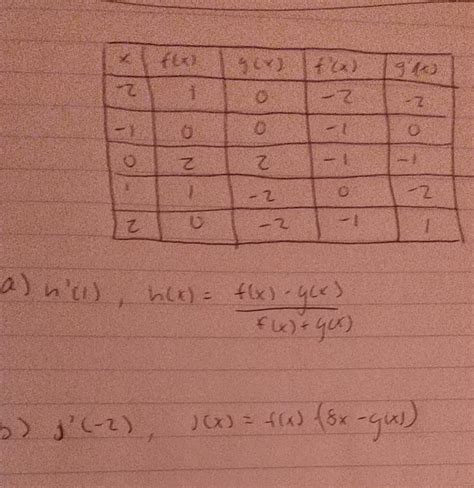 x f(x) g(x) f'(x) g'(x)
-2 1 0 -2 -2
-1 0 0 -1 0
0 2 2 -1 -1
1 1 -2 0 -2
2 0 -2 -1 1
a) h'(1), h(x) = f(x) - g(x) / f(x) + g(x)
b) j'(-2), j(x) = f(x) (8x - g(x))